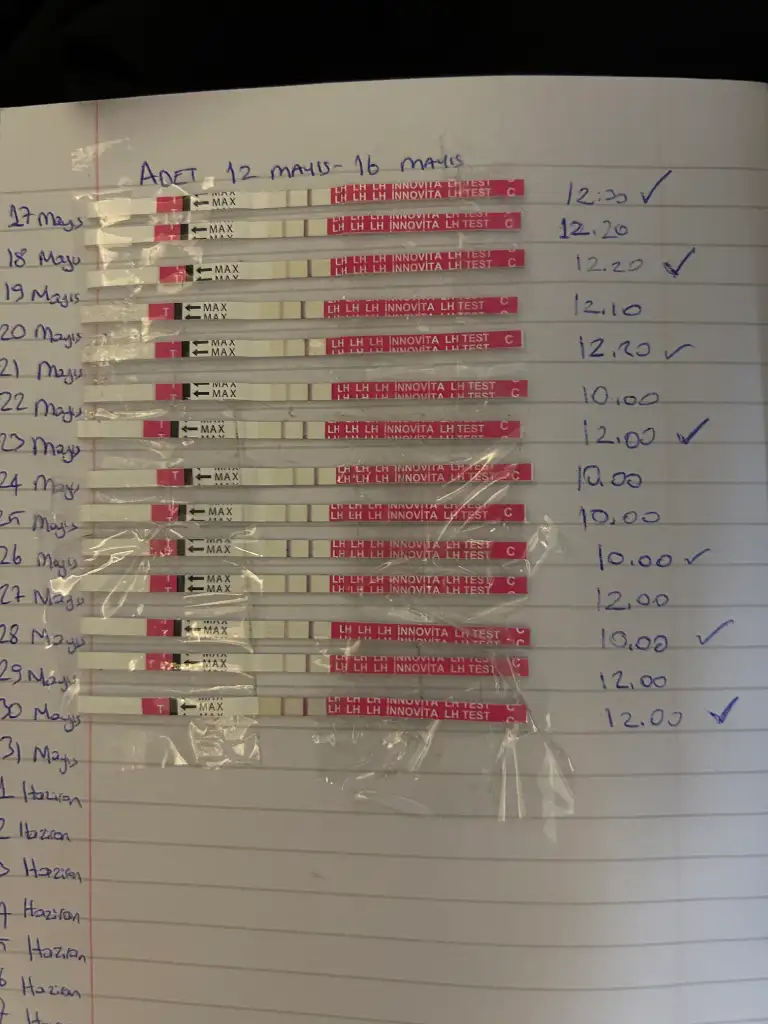 ADET 12 MAYIS - 16 MAYIS
17 Mayıs T ← MAX LH LH LH İNNOVİTA LH TEST C 12:20 ✓
18 Mayıs T ← MAX LH LH LH İNNOVİTA LH TEST C 12.20
19 Mayıs T ← MAX LH LH LH İNNOVİTA LH TEST C 12.20 ✓
20 Mayıs T ← MAX LH LH LH İNNOVİTA LH TEST C 12.10
21 Mayıs T ← MAX LH LH LH İNNOVİTA LH TEST C 12.20 ✓
22 Mayıs T ← MAX LH LH LH İNNOVİTA LH TEST C 10.00
23 Mayıs T ← MAX LH LH LH İNNOVİTA LH TEST C 12.00 ✓
24 Mayıs T ← MAX LH LH LH İNNOVİTA LH TEST C 10.00
25 Mayıs T ← MAX LH LH LH İNNOVİTA LH TEST C 10.00
26 Mayıs T ← MAX LH LH LH İNNOVİTA LH TEST C 10.00 ✓
27 Mayıs T ← MAX LH LH LH İNNOVİTA LH TEST C 12.00
28 Mayıs T ← MAX LH LH LH İNNOVİTA LH TEST C 10.00 ✓
29 Mayıs T ← MAX LH LH LH İNNOVİTA LH TEST C 12.00
30 Mayıs T ← MAX LH LH LH İNNOVİTA LH TEST C 12.00 ✓
31 Mayıs
1 Haziran
2 Haziran
3 Haziran
4 Haziran
5 Haziran
6 Haziran